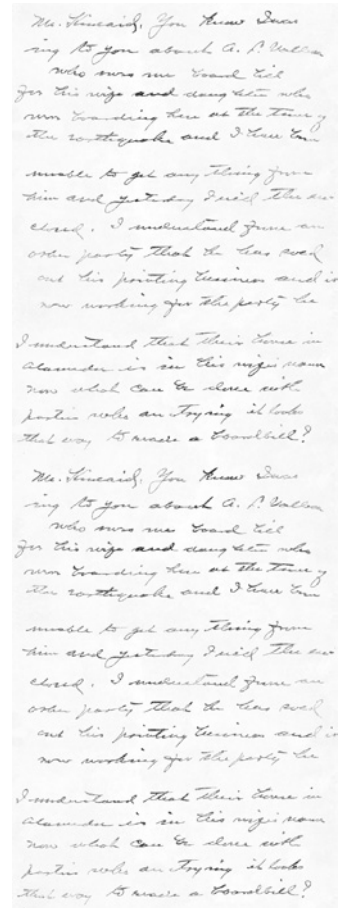 Mr. Kincaid, You know I was
ing to you about A. P.
who owes me board bill
for his wife and daughter who
were boarding here at the time of
the earthquake and I have been
unable to get any thing from
him and yesterday I rec'd the en-
closed. I understand from an
other party that he has sold
out his printing business and is
now working for the party he
I understand that their house in
Alameda is in his wife's name
now what can be done with
parties who are trying it looks
that way to evade a boardbill?
Mr. Kincaid, You know I was
ing to you about A. P.
who owes me board bill
for his wife and daughter who
were boarding here at the time of
the earthquake and I have been
unable to get any thing from
him and yesterday I rec'd the en-
closed. I understand from an
other party that he has sold
out his printing business and is
now working for the party he
I understand that their house in
Alameda is in his wife's name
now what can be done with
parties who are trying it looks
that way to evade a boardbill?